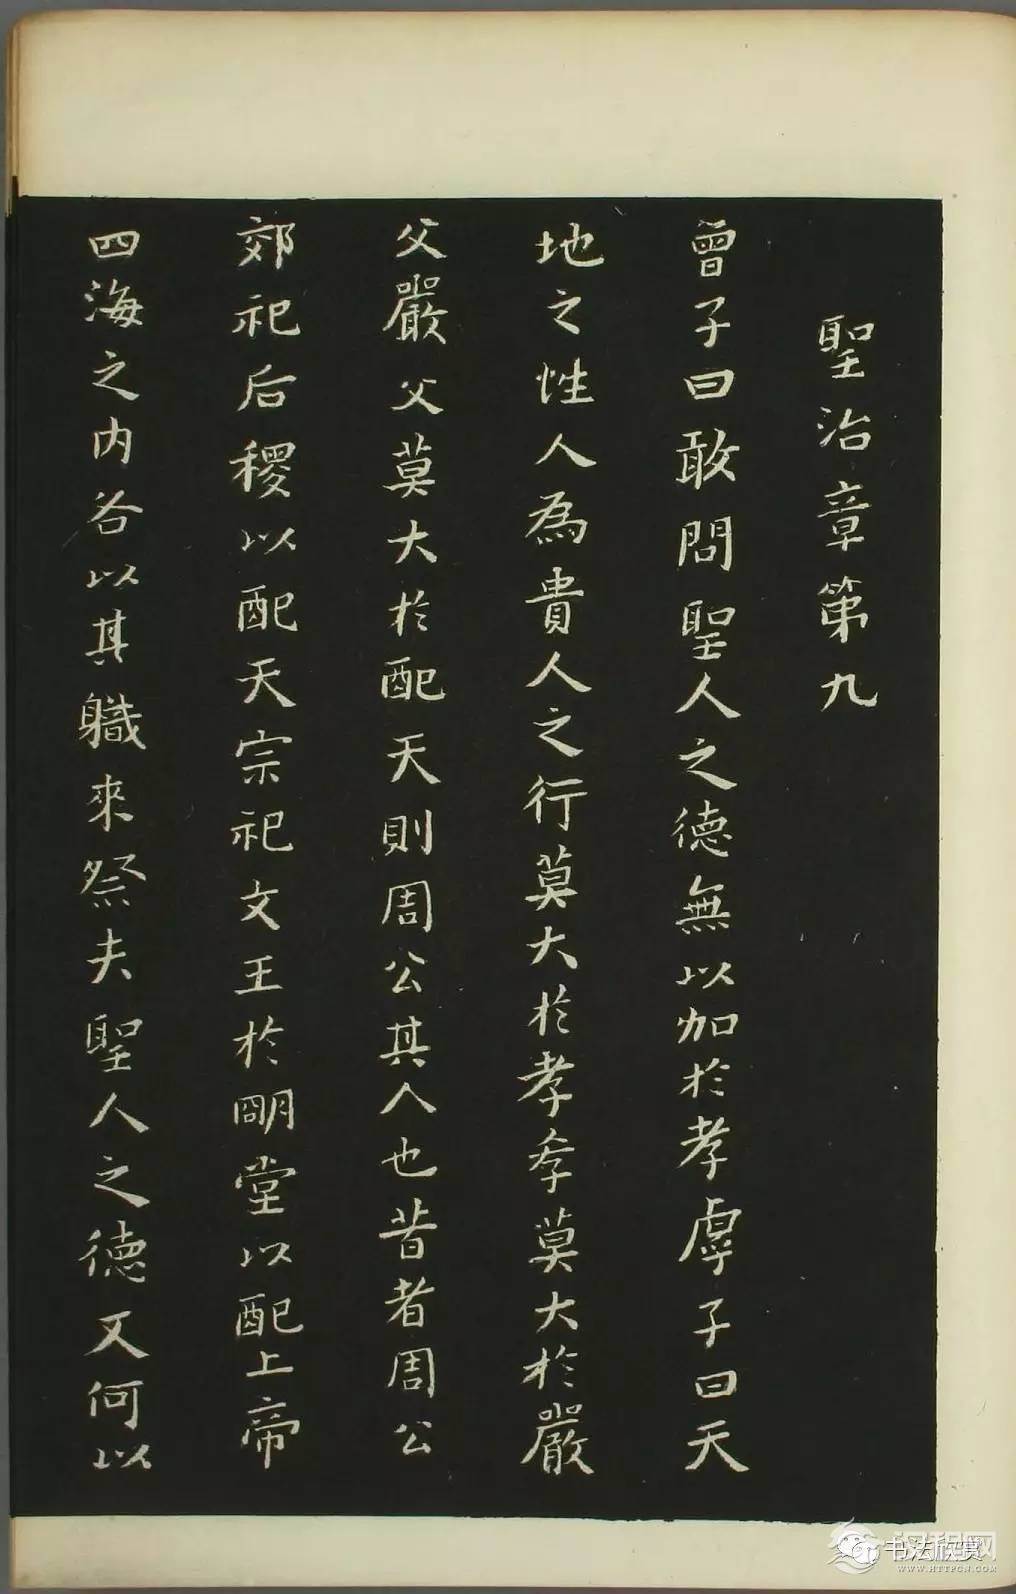 聖治章第九
曾子曰敢問聖人之德無以加於孝虖子曰天
地之性人為貴人之行莫大於孝孝莫大於嚴
父嚴父莫大於配天則周公其人也昔者周公
郊祀后稷以配天宗祀文王於明堂以配上帝
四海之内各以其職來祭夫聖人之德又何以
书法欣赏
汉程网
WWW.HTTPCN.COM